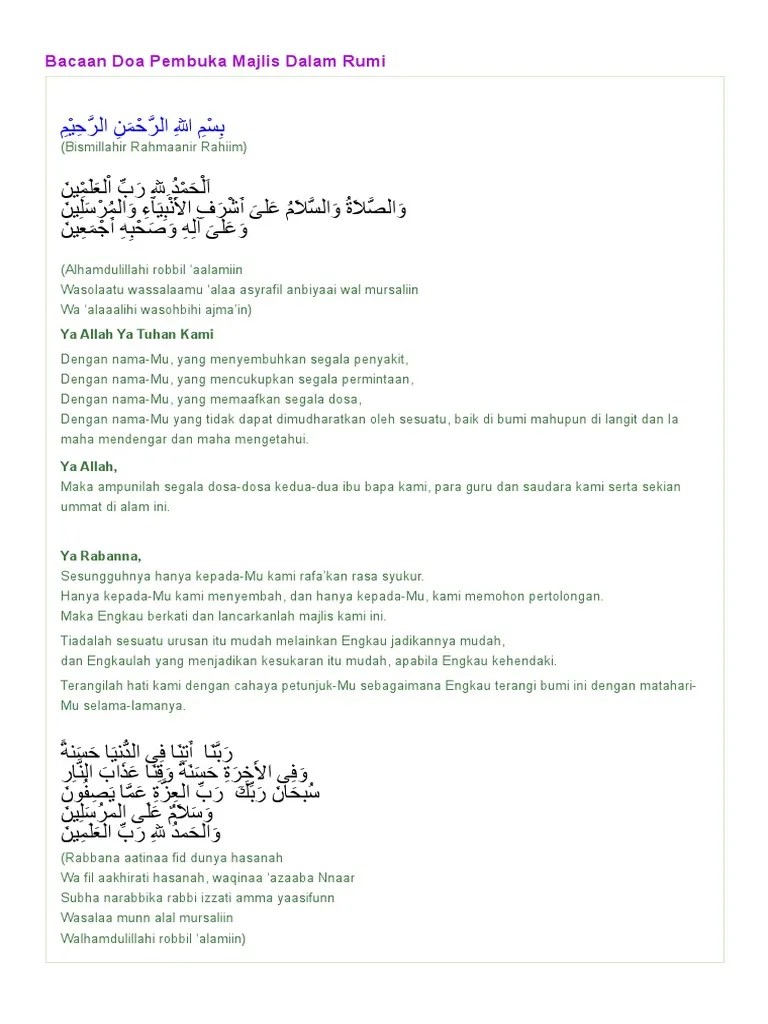 Bacaan Doa Pembuka Majlis Dalam Rumi
بِسْمِ اللهِ الرَّحْمَنِ الرَّحِيْمِ
(Bismillahir Rahmaanir Rahiim)
اَلْحَمْدُ ِللهِ رَبِّ الْعَلَمْيِنَ
وَالصَّلاَةُ وَالسَّلاَمُ عَلىَ أَشْرَفِ الأَنْبِيَآءِ وَالمُرْسَلِينَ
وَعَلىَ آلِهِ وَصَحْبِهِ أَجْمَعِينَ
(Alhamdulillahi robbil ‘aalamiin
Wasolaatu wassalaamu ‘alaa asyrafil anbiyaai wal mursaliin
Wa ‘alaaalihi wasohbihi ajma’in)
Ya Allah Ya Tuhan Kami
Dengan nama-Mu, yang menyembuhkan segala penyakit,
Dengan nama-Mu, yang mencukupkan segala permintaan,
Dengan nama-Mu, yang memaafkan segala dosa,
Dengan nama-Mu yang tidak dapat dimudharatkan oleh sesuatu, baik di bumi mahupun di langit dan Ia
maha mendengar dan maha mengetahui.
Ya Allah,
Maka ampunilah segala dosa-dosa kedua-dua ibu bapa kami, para guru dan saudara kami serta sekian
ummat di alam ini.
Ya Rabanna,
Sesungguhnya hanya kepada-Mu kami rafa’kan rasa syukur.
Hanya kepada-Mu kami menyembah, dan hanya kepada-Mu, kami memohon pertolongan.
Maka Engkau berkati dan lancarkanlah majlis kami ini.
Tiadalah sesuatu urusan itu mudah melainkan Engkau jadikannya mudah,
dan Engkaulah yang menjadikan kesukaran itu mudah, apabila Engkau kehendaki.
Terangilah hati kami dengan cahaya petunjuk-Mu sebagaimana Engkau terangi bumi ini dengan matahari-
Mu selama-lamanya.
رَبَّنَا أَتِنَا فِى الدُّنيَا حَسَنةً
وَفِى الأَخِرَةِ حَسَنَةً وَقِنَا عَذَابَ النَّارِ
سُبحَانَ رَبِّكَ رَبِّ العِزَّةِ عَمَّا يَصِفُونَ
وَسَلاَمٌ عَلَى المرُسَلِينَ
وَالحَمدُ للهِ رَبِّ العَلَمِينَ
(Rabbana aatinaa fid dunya hasanah
Wa fil aakhirati hasanah, waqinaa ‘azaaba Nnaar
Subha narabbika rabbi izzati amma yaasifunn
Wasalaa munn alal mursaliin
Walhamdulillahi robbil ‘alamiin)